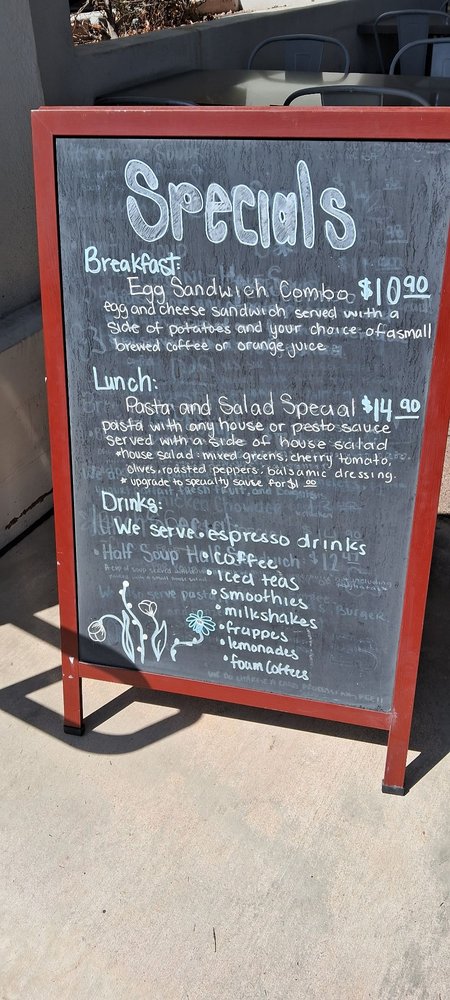 Specials
Breakfast:
Egg Sandwich Combo $10.90
egg and cheese sandwich served with a
side of potatoes and your choice of a small
brewed coffee or orange juice
Lunch:
Pasta and Salad Special $14.90
pasta with any house or pesto sauce
served with a side of house salad
*house salad: mixed greens, cherry tomato,
olives, roasted peppers, balsamic dressing.
* upgrade to specialty sauce for $1.00
Drinks:
We serve • espresso drinks
• Coffee
• Iced teas
• Smoothies
• milkshakes
• frappes
• lemonades
• foam Coffees
• Half Soup Half Sandwich $12